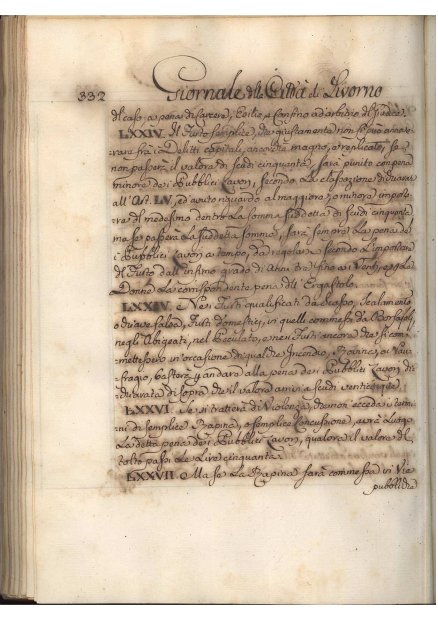 332 Giornale della Città di Livorno
del caso, a pena di Carcere, Esilio, o Confino ad arbitrio del Giudice
LXXIV. Il Furto semplice, che giustamente non si può annove
rare frà i Delitti capitali, ancorchè magno, e replicato, se
non passerà il valore di scudi cinquanta, sarà punito con pena
minore dei Pubblici Lavori, secondo la classazione di durata
all'Art. LV, ed avuto riguardo al maggiore, o minore impor
tare del medesimo dentro la somma suddetta di scudi cinquanta
ma se passerà la suddetta somma, sarà sempre la pena dei
Pubblici Lavori a tempo, da regolarsi secondo l'importare
del Furto dall'infimo grado di Anni tre fino a Venti, e per le
Donne la corrispondente pena dell'Ergastolo.
LXXIV. Nei Furti qualificati da scasso, scalamento
o Chiave falsa, Furti domestici, in quelli commessi da Borsajoli,
negli Abigeati, nel Peculato, e nei Furti ancora che si com
mettessero in occasione di qualche Incendio, Rovine, o Nau
fragio, basterà, per andare alla pena dei Pubblici Lavori di
durata di sopra che il valore arrivi a scudi venticinque.
LXXVI. Se si tratterà di Violenza, che non ecceda i termi
ni di semplice Rapina, o semplice Concussione, avrà luogo
la detta pena dei Pubblici Lavori, qualora il valore del
tolto passi le Lire cinquanta.
LXXVII. Ma se la Rapina sarà commessa in Vie
pubbliche